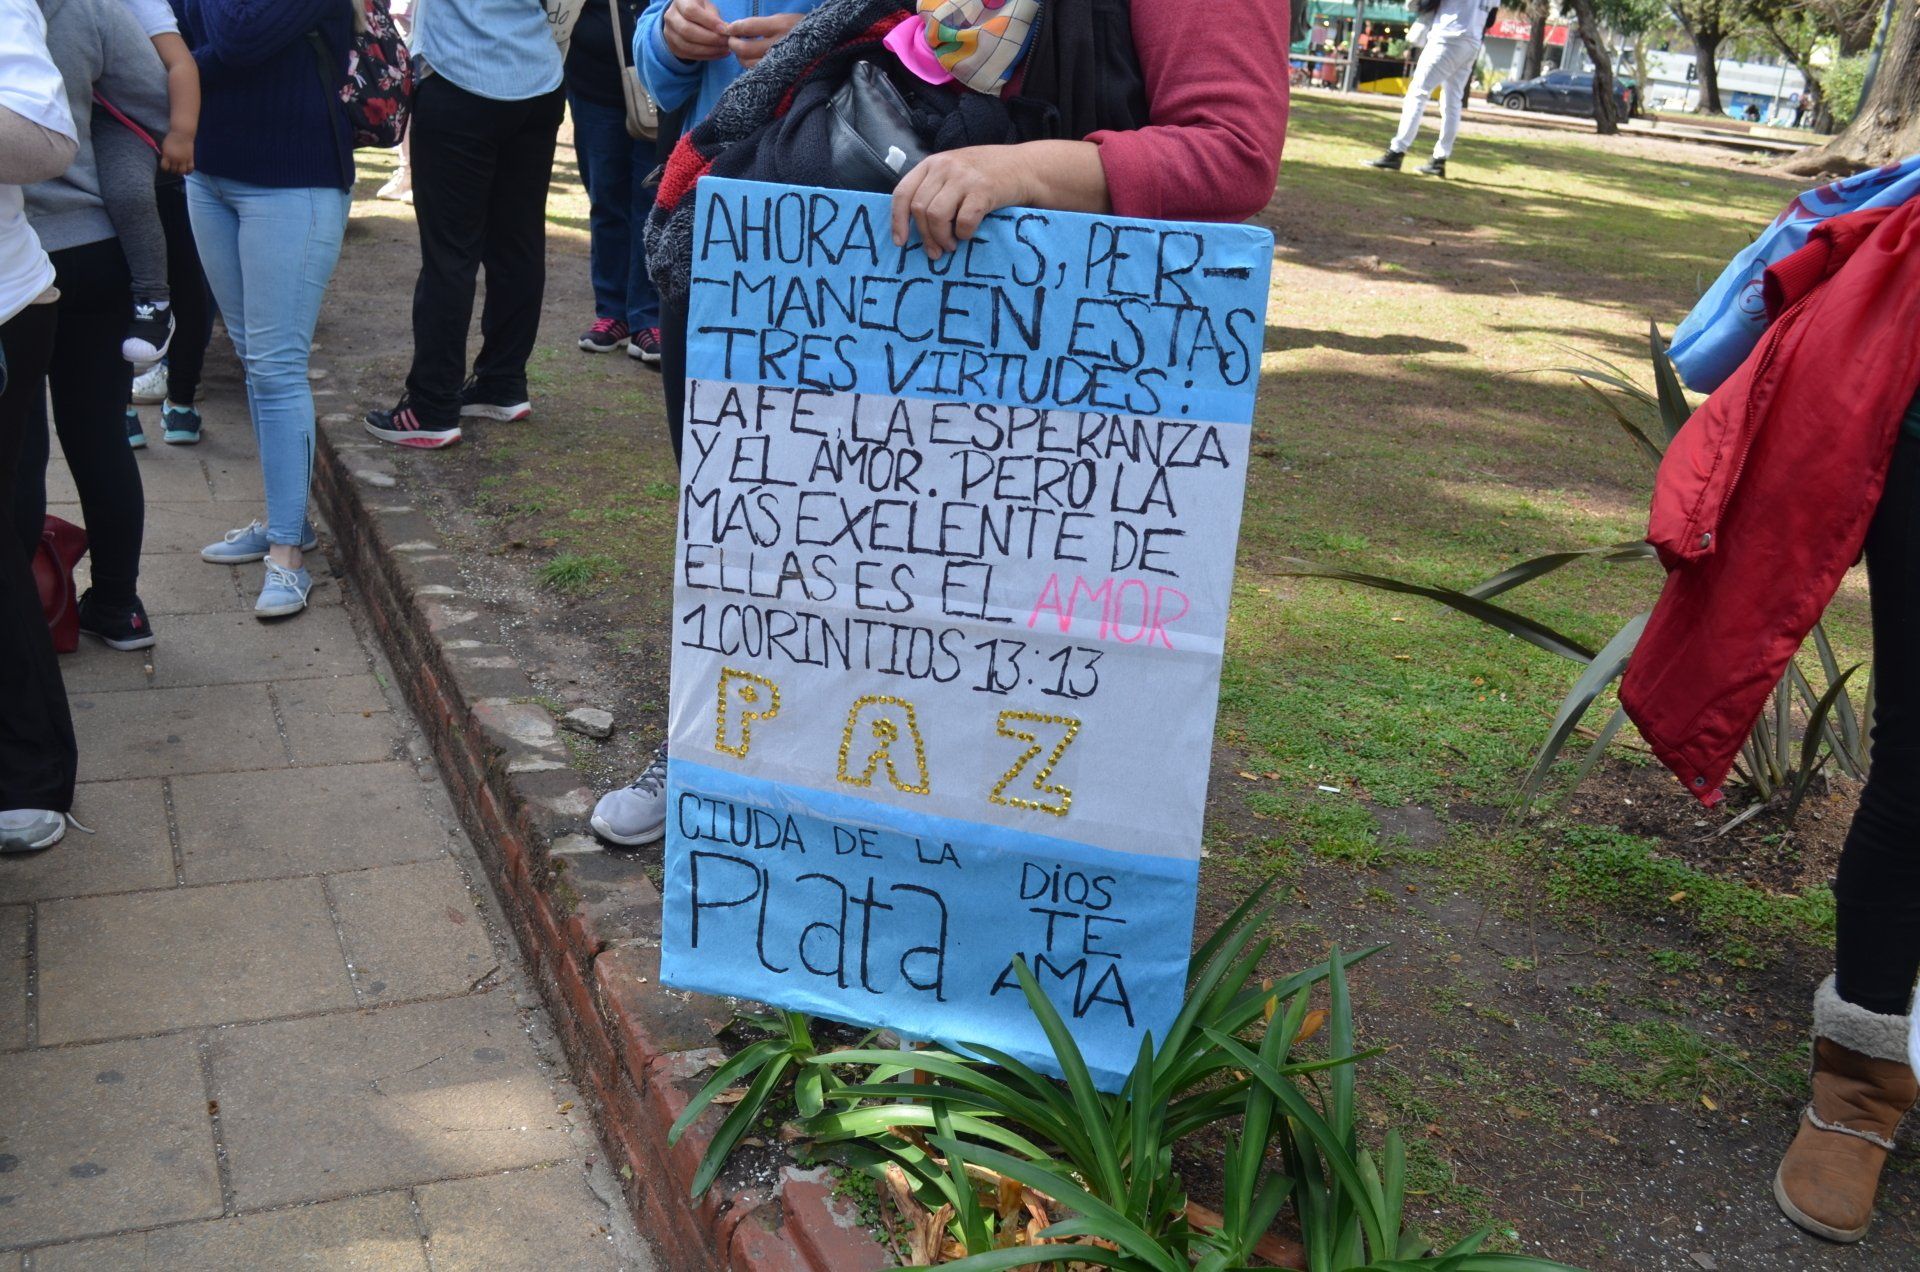 AHORA PUES, PER-
-MANECEN ESTAS
TRES VIRTUDES:
LA FE, LA ESPERANZA
Y EL AMOR. PERO LA
MÁS EXELENTE DE
ELLAS ES EL AMOR
1 CORINTIOS 13:13
PAZ
CIUDA DE LA
Plata
DiOS
TE
AMA